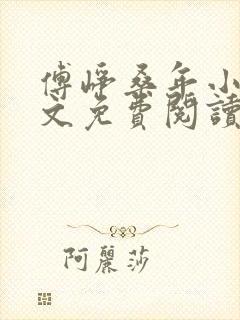 傅崢桑年小
文免費閱讀
阿麗莎